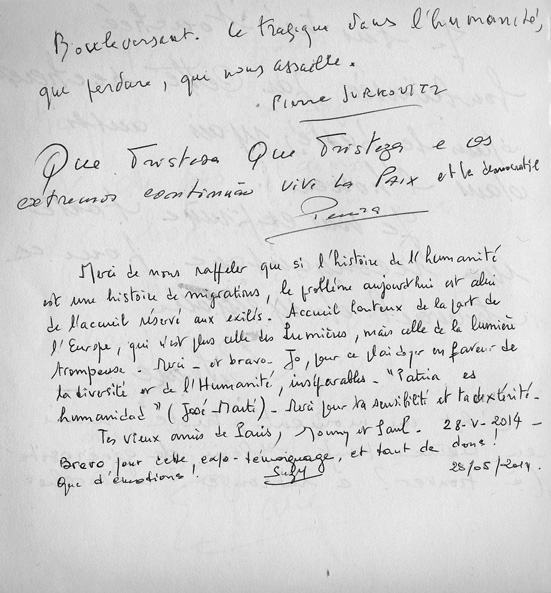 Bouleversant. Le tragique dans l'humanité,
que perdure, qui nous assaille.
Pierre JURKOVITZ
Que Tristesa Que Tristeza e os
extremos continuão vive La PAIX et la democratie
Merci de nous rappeler que si l'histoire de l'humanité
est une histoire de migrations, le problème aujourd'hui est celui
de l'accueil réservé aux exilés. Accueil honteux de la part de
l'Europe, qui n'est plus celle des Lumières, mais celle de la lumière
trompeuse. Merci - et bravo - Jo, pour ce plaidoyer en faveur de
la diversité et de l'Humanité, inséparables. "Patria es
humanidad" (José Martí) - Merci pour ta sensibilité et ta dextérité -
Tes vieux amis de Paris, et Paul - 28-V-2014 -
Bravo pour cette expo-témoignage, et tant de dons!
Que d'émotions, Suzy 28/05/2014.